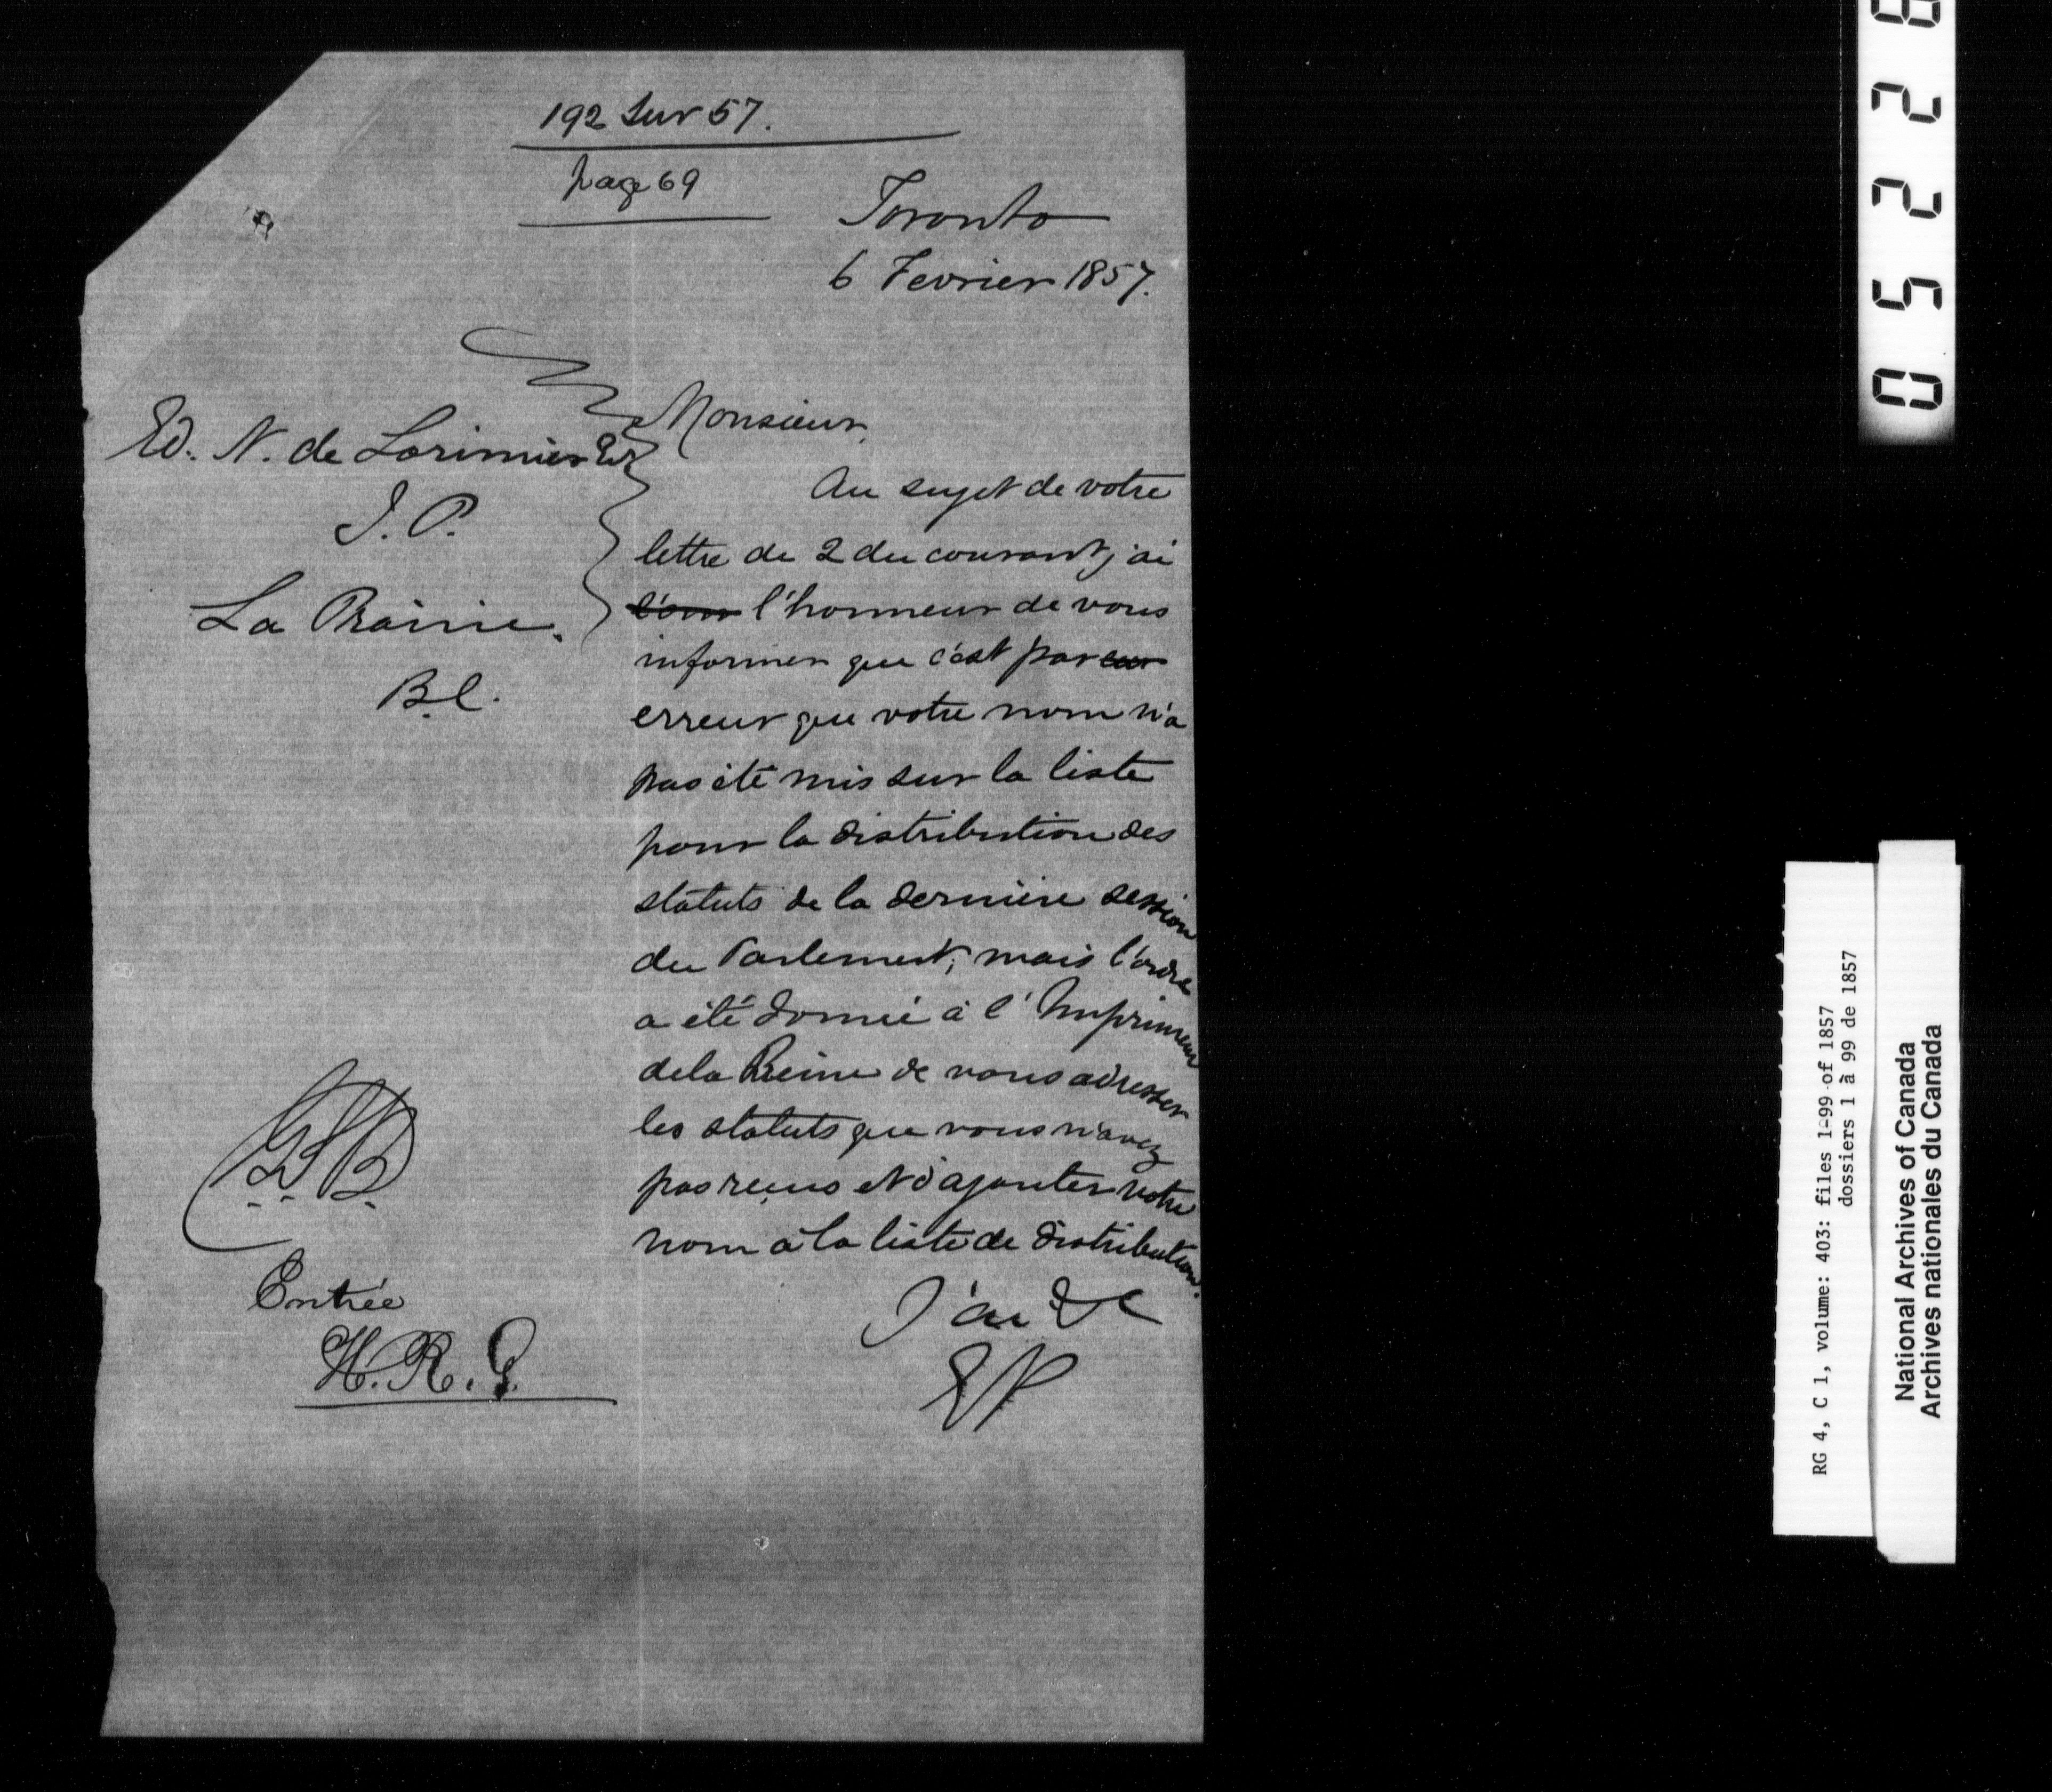 192 Sur 57.
page 69
Toronto
6 Fevrier 1857.
Ed. N. de Lorimier Er
J.P.
La Prairie.
B.C.
Monsieur,
Au sujet de votre
lettre de 2 du courant, j'ai
l'honneur de vous
informer que c'est par
erreur que votre nom n'a
pas été mis sur la liste
pour la distribution des
statuts de la dernière session
du Parlement; mais l'ordre
a été donné à l'Imprimeur
de la Reine de vous adresser
les statuts que vous n'avez
pas reçus et d'ajouter votre
nom à la liste de distribution.
J'ai &c
EP
Entrée
H.R.G.
0 5 2 2 8
RG 4, C 1, volume: 403: files 1-99 of 1857
dossiers 1 à 99 de 1857
National Archives of Canada
Archives nationales du Canada